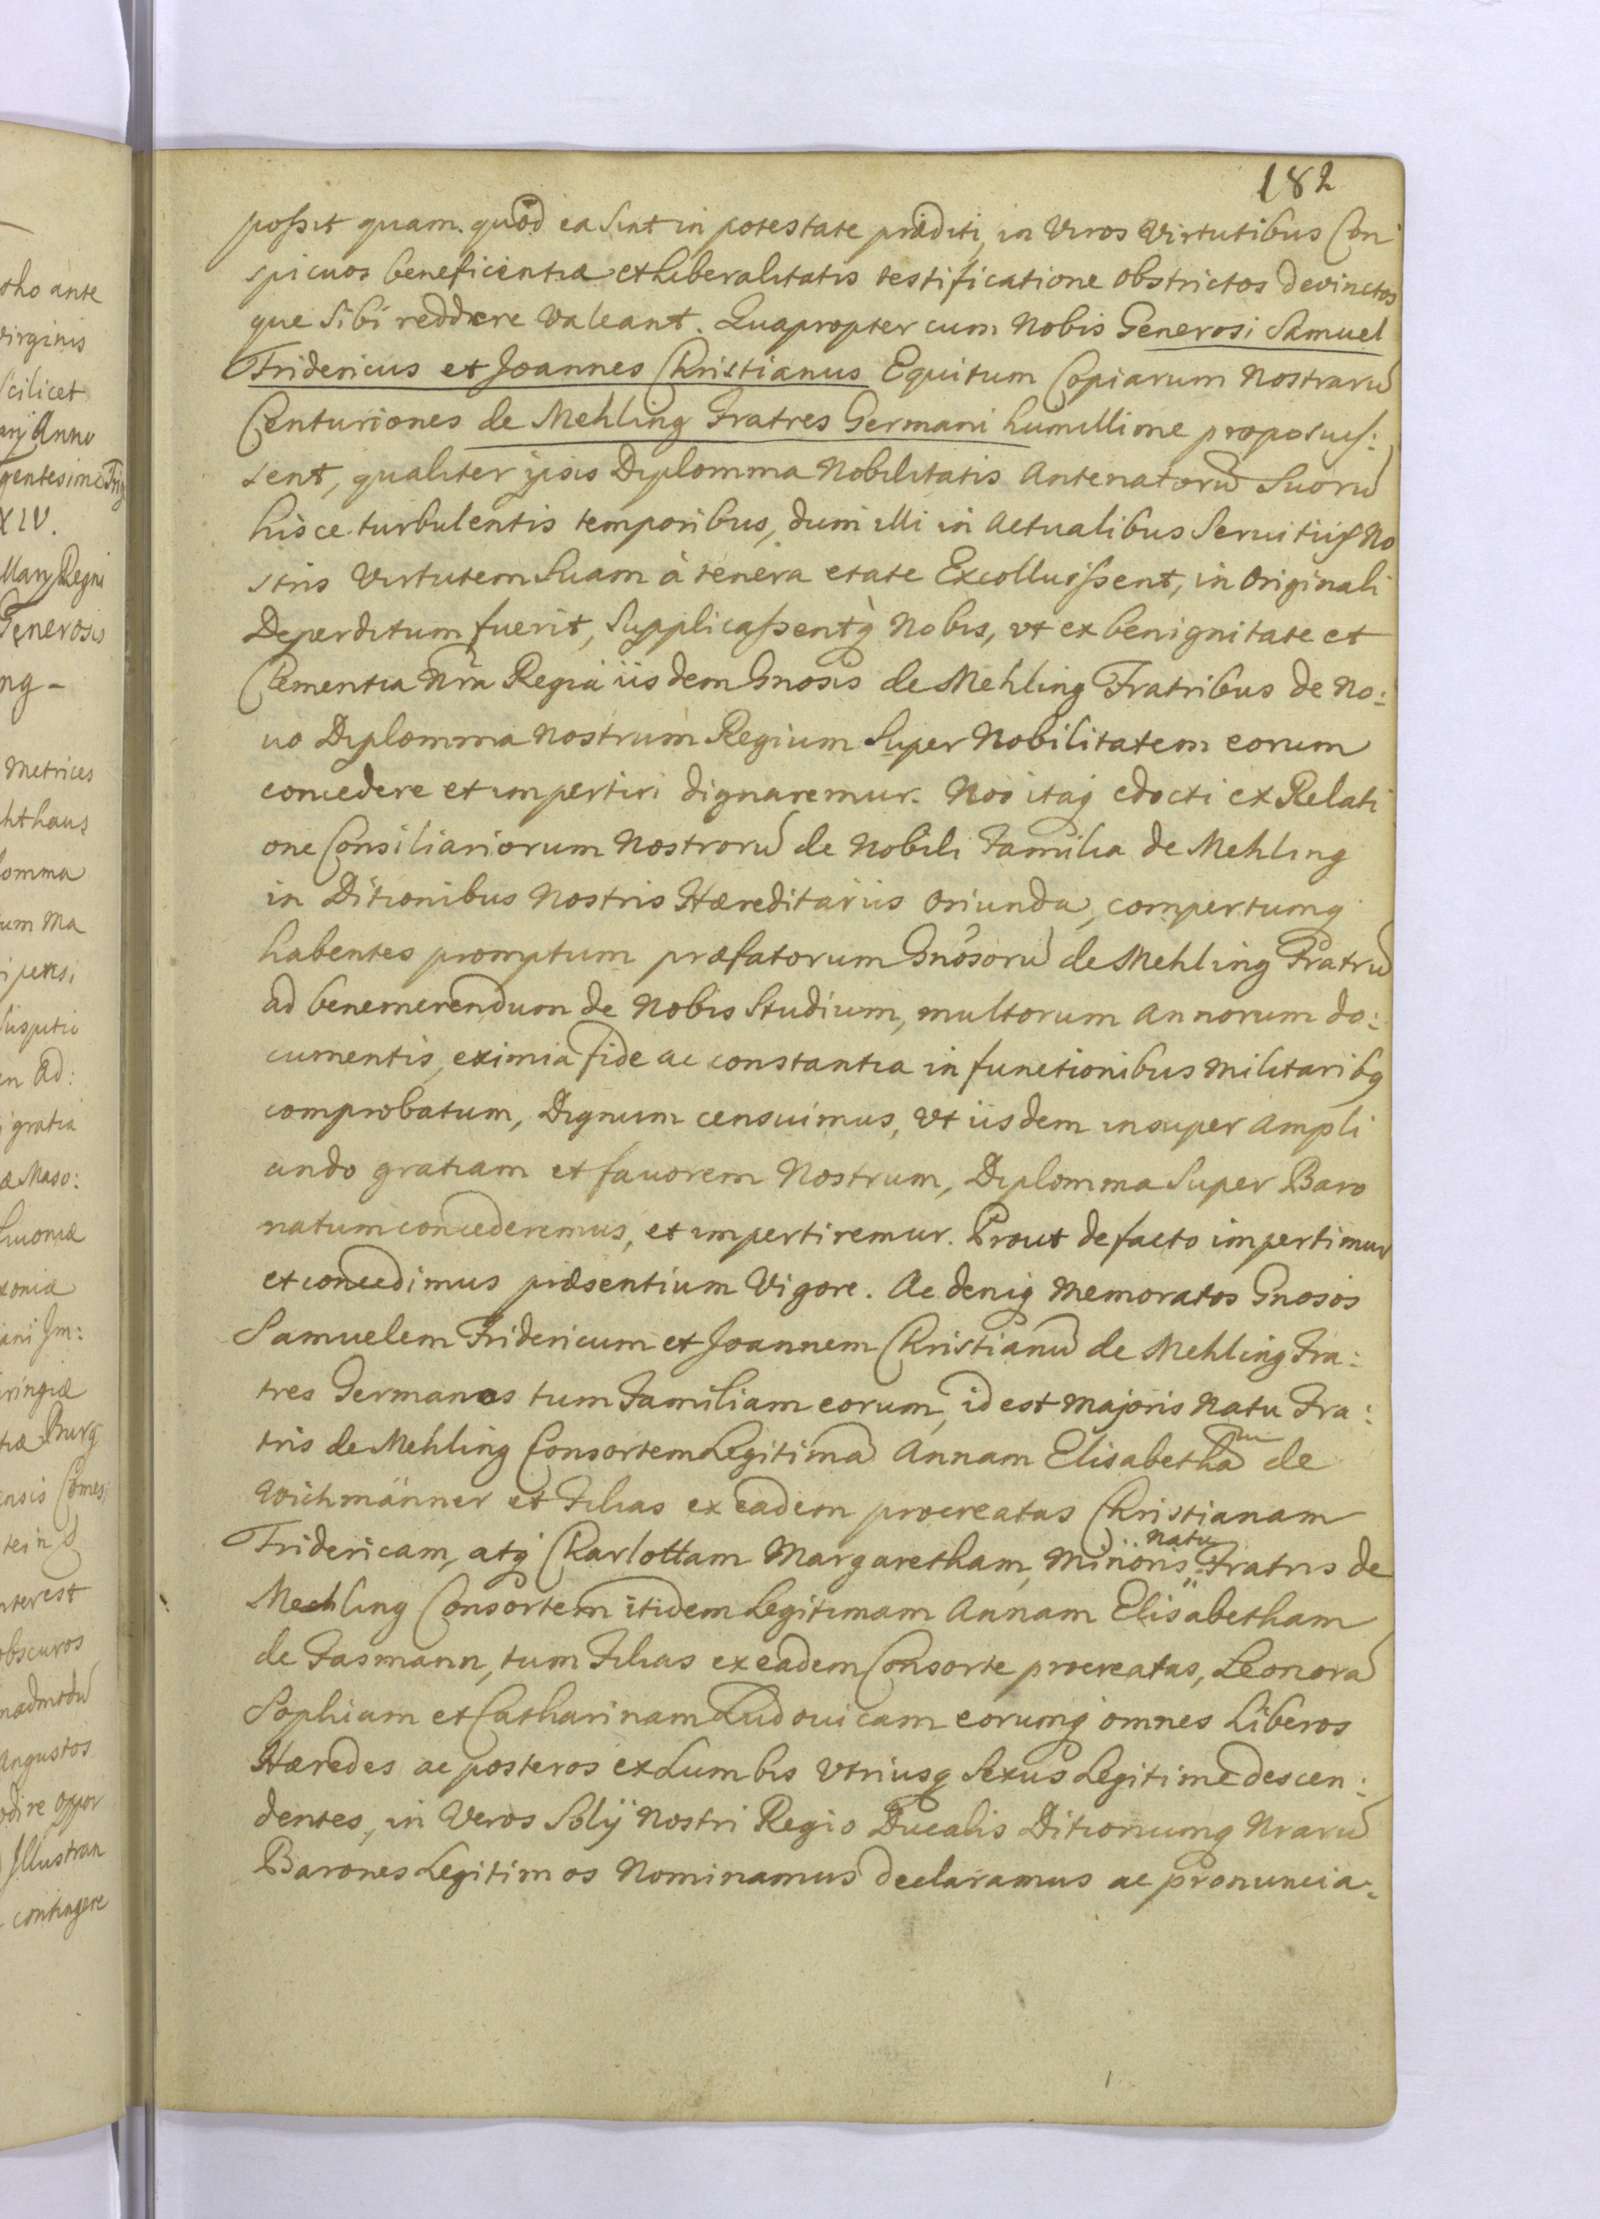 182
possit quam. quod ea sint in potestate præditi, in Viros Virtutibus Con
spicuos beneficentiæ et liberalitatis testificatione obstrictos devinctos
que sibi reddere valeant. Quapropter cum Nobis Generosi Samuel
Fridericus et Joannes Christianus Equitum Copiarum Nostrarū
Centuriones de Mehling Fratres Germani humillime proposuis:
sent, qualiter ipsis Diplomma Nobilitatis Antenatorū Suorū
hisce turbulentis temporibus, dum illi in Actualibus Servitiis No
stris Virtutem Suam à tenera etate Excolluissent, in Originali
Deperditum fuerit, Supplicassentq̀ Nobis, vt ex benignitate et
Clementia Nrā Regia iisdem Gnosis de Mehling Fratribus de No:
uo Diplomma Nostrum Regium Super Nobilitatem eorum
concedere et impertiri dignaremur. Nos itaq edocti ex Relati
one Consiliariorum Nostrorū de Nobili Familia de Mehling
in Ditionibus Nostris Hæreditariis Oriunda, compertumq
habentes promptum præfatorum Gnosorū de Mehling Fratrū
ad benemerendum de Nobis Studium, multorum Annorum do:
cumentis, eximia fide ac constantia in functionibus Militaribq
comprobatum, Dignum censuimus, Vt iisdem insuper Ampli
ando gratiam et fauorem Nostrum, Diplomma Super Baro
natum concederemus, et impertiremur. Prout de facto impertimur
et concedimus præsentium Vigore. Ac deniq Memoratos Gnosos
Samuelem Fridericum et Joannem Christianū de Mehling Fra:
tres Germanos tum Familiam eorum, id est Majoris Natu Fra:
tris de Mehling Consortem Legitimā Annam Elisabetham de
Wichmänner et Filias ex eadem procreatas Christianam
Fridericam, atq Charlottam Margaretham, Minoris Natu Fratris de
Mechling Consortem itidem Legitimam Annam Elisabetham
de Fasmann, tum Filias ex eadem Consorte procreatas, Leonorā
Sophiam et Catharinam Ludouicam eorumq omnes Liberos
Hæredes ac posteros ex Lumbis Vtriusq Sexus Legitime descen:
dentes, in Veros Solij Nostri Regio Ducalis Ditionumq Nrarū
Barones Legitimos Nominamus declaramus ac pronuncia: